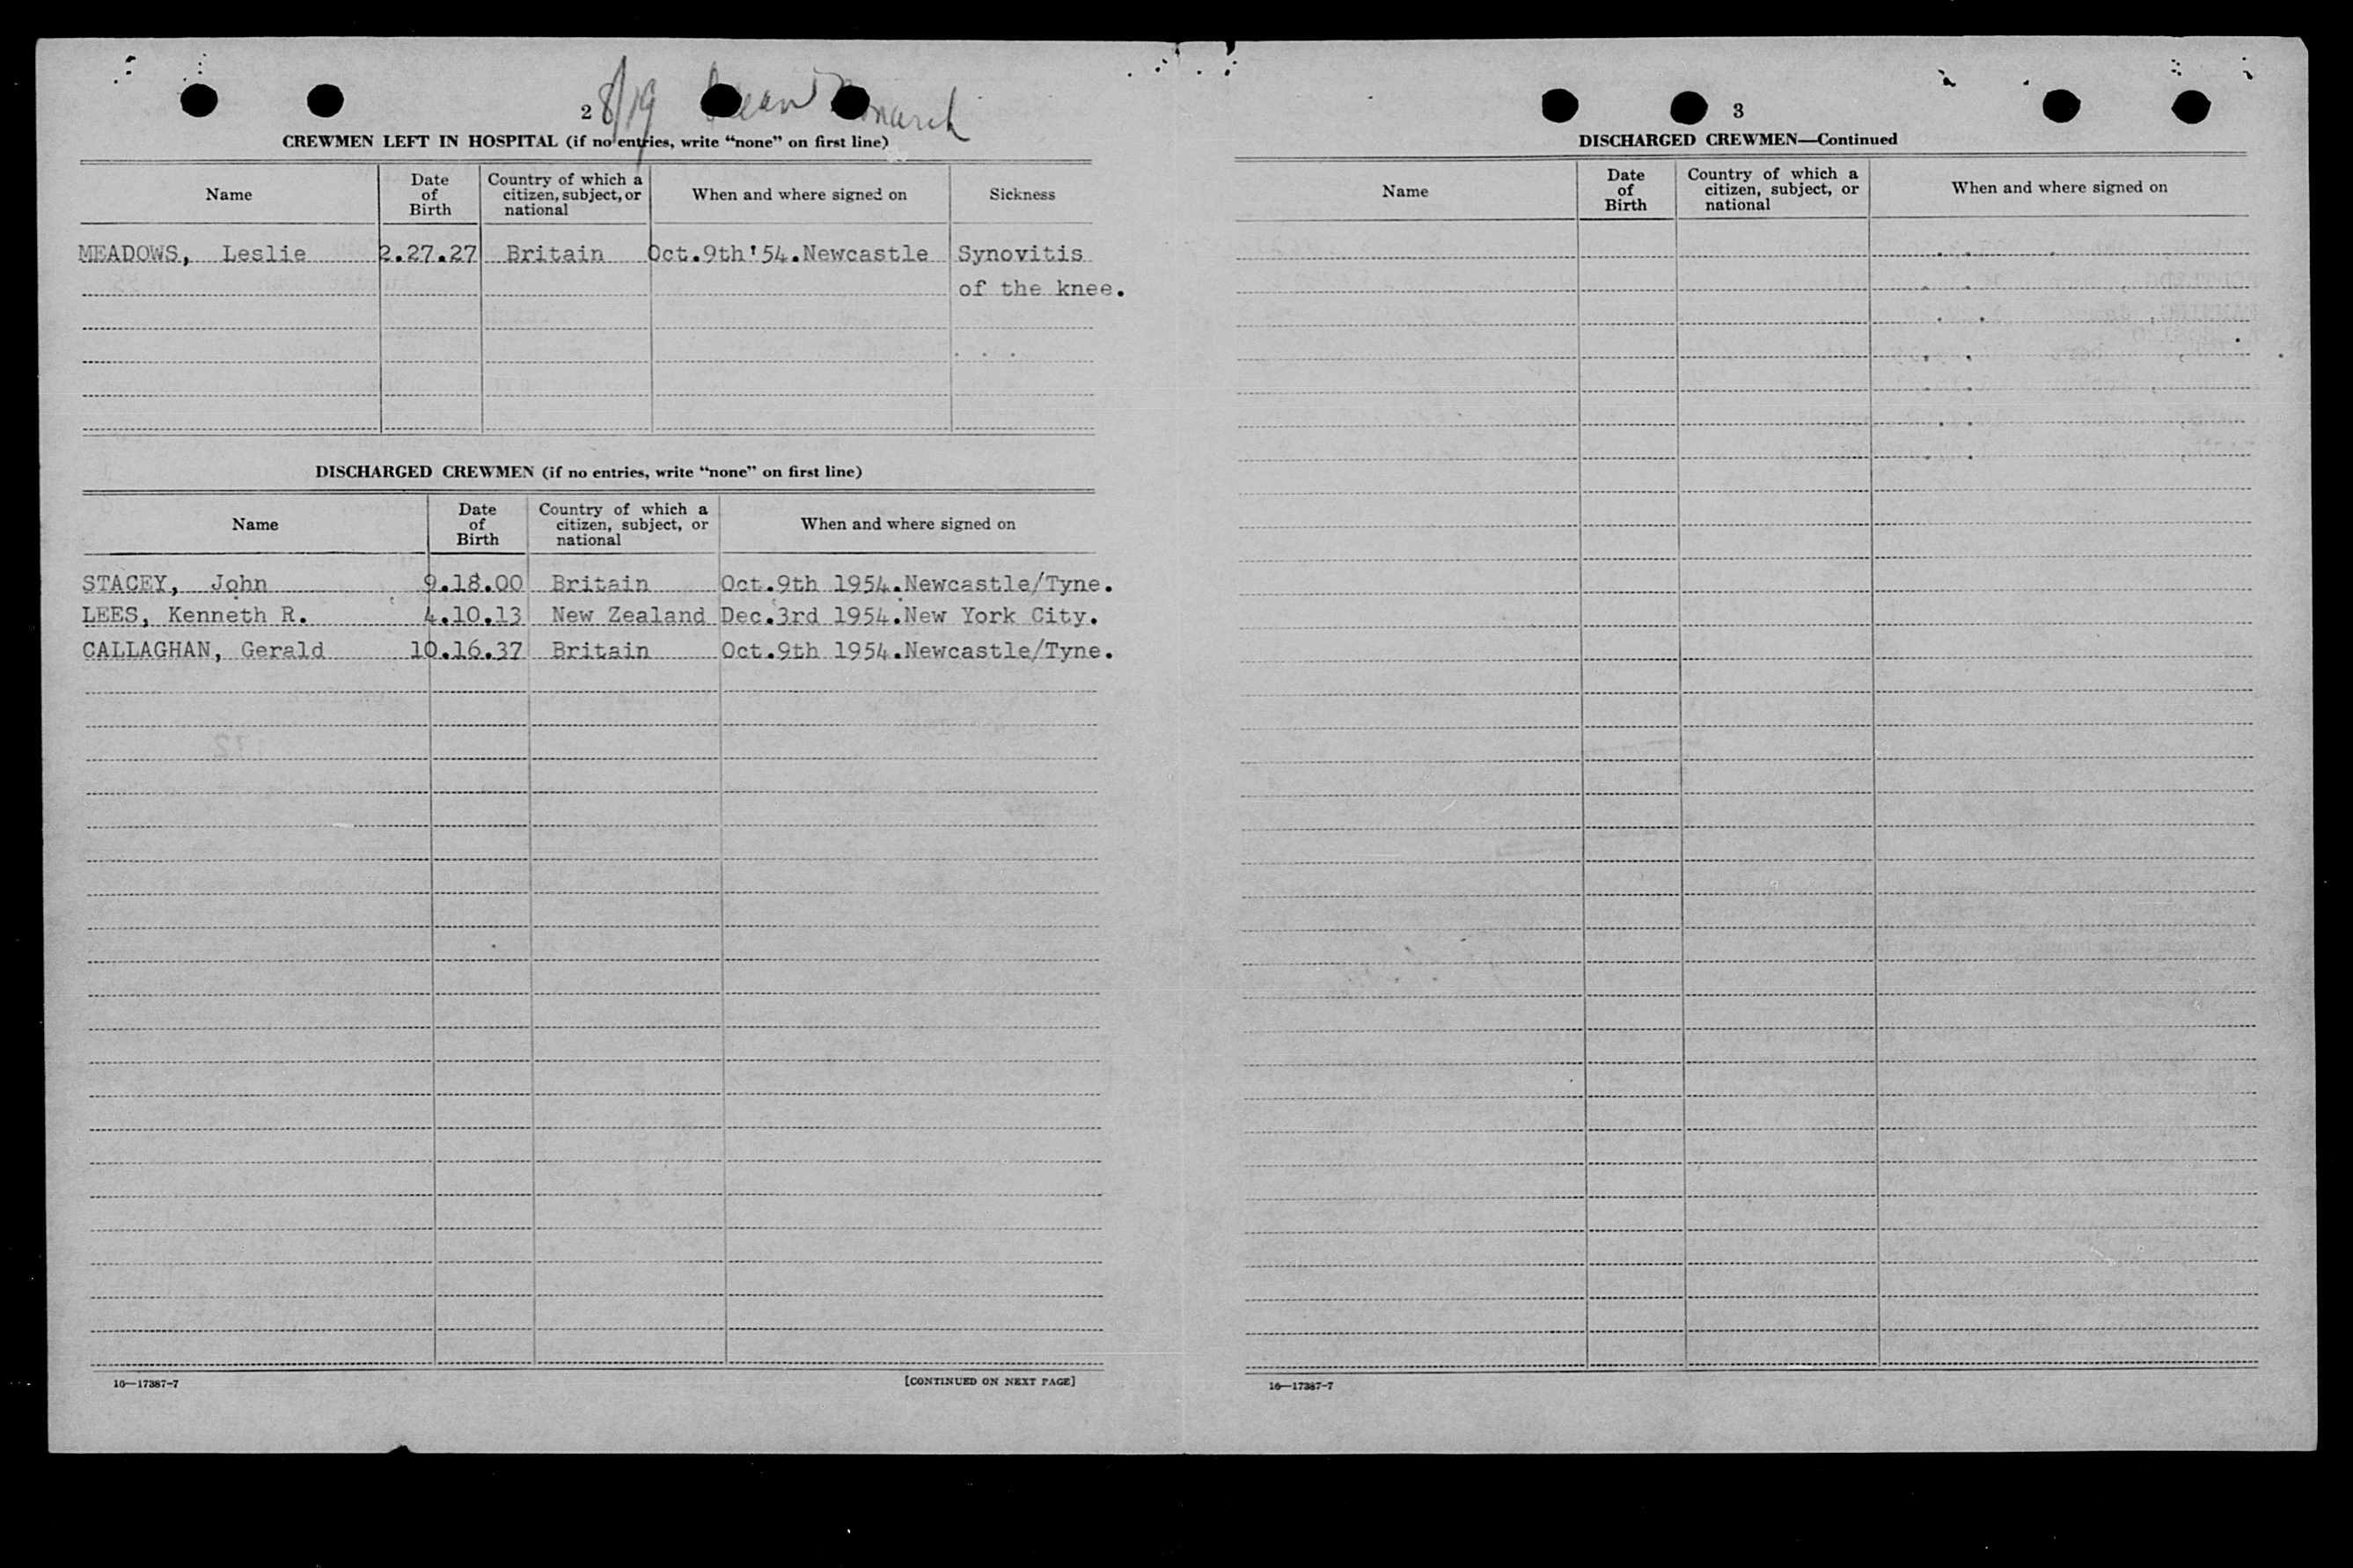 2 8/19
CREWMEN LEFT IN HOSPITAL (if no entries, write “none” on first line)
Name Date of Birth Country of which a citizen, subject, or national When and where signed on Sickness
MEADOWS, Leslie 2.27.27 Britain Oct.9th'54.Newcastle Synovitis
of the knee.
DISCHARGED CREWMEN (if no entries, write “none” on first line)
Name Date of Birth Country of which a citizen, subject, or national When and where signed on
STACEY, John 9.18.00 Britain Oct.9th 1954.Newcastle/Tyne.
LEES, Kenneth R. 4.10.13 New Zealand Dec.3rd 1954.New York City.
CALLAGHAN, Gerald 10.16.37 Britain Oct.9th 1954.Newcastle/Tyne.
16—17387-7 [CONTINUED ON NEXT PAGE]
3
DISCHARGED CREWMEN—Continued
Name Date of Birth Country of which a citizen, subject, or national When and where signed on
16—17387-7